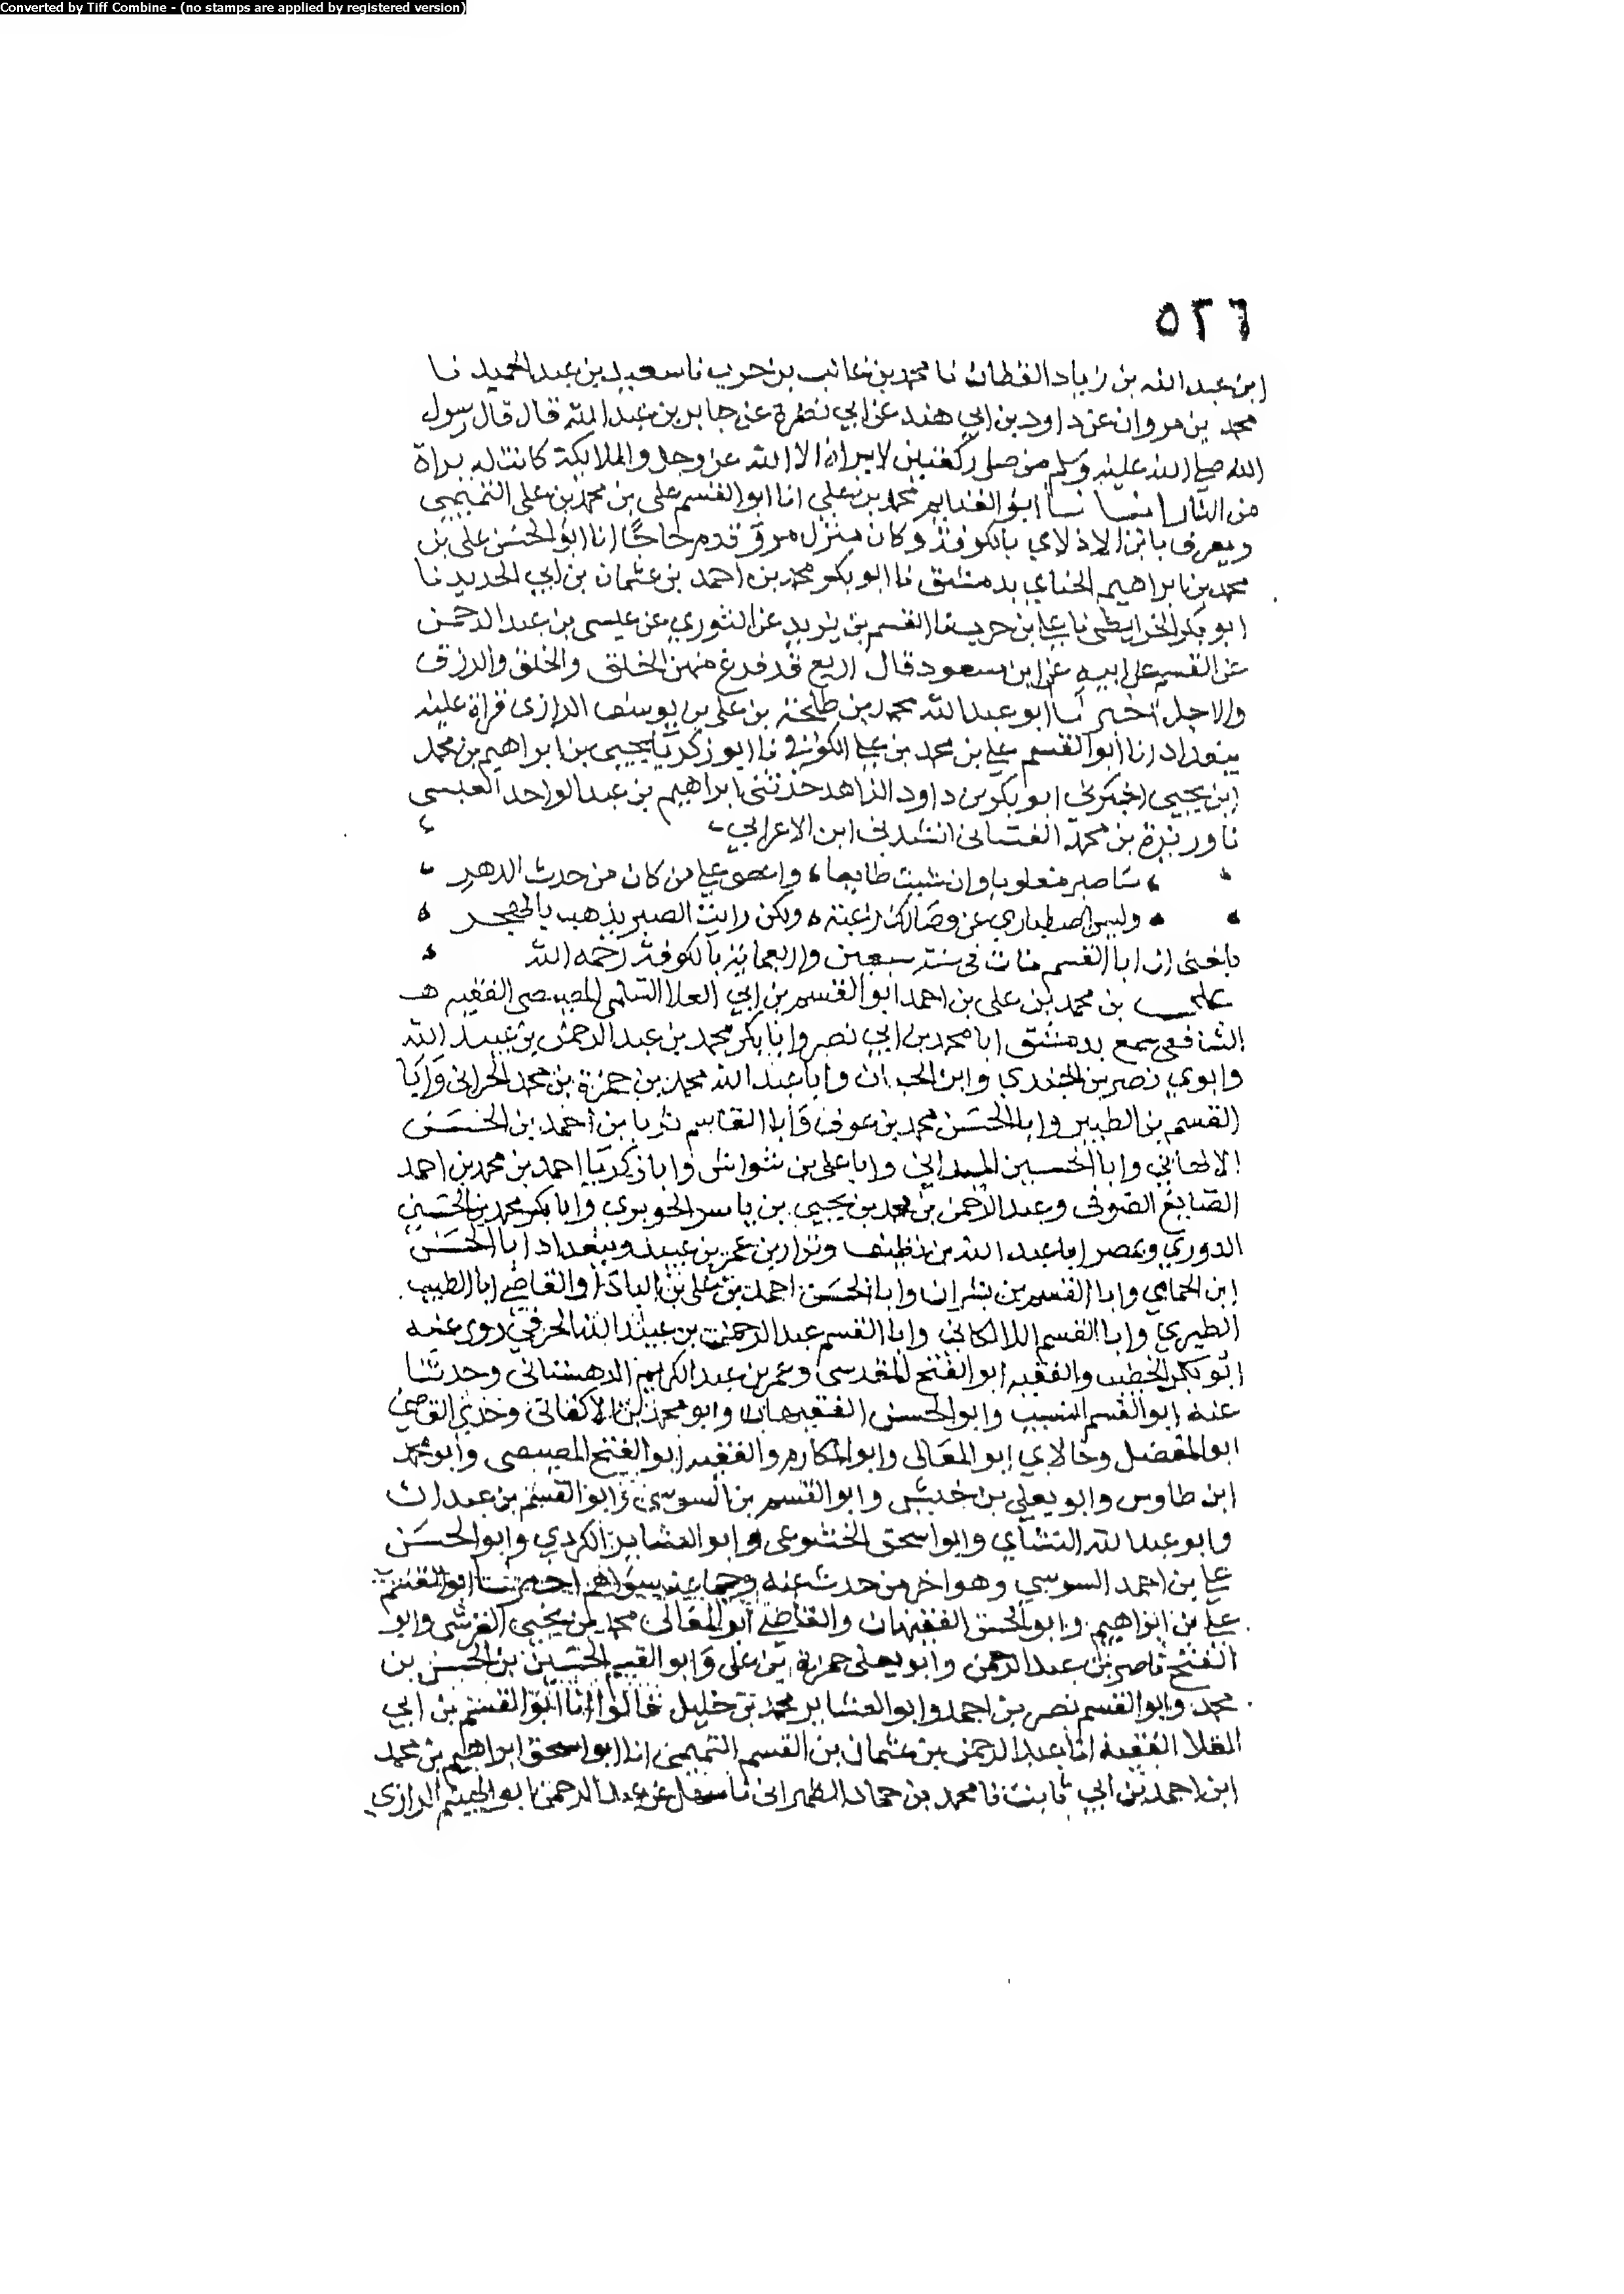 Converted by Tiff Combine - (no stamps are applied by registered version)
٥٢٦
ابن عبد الله بن زياد القطان نا محمد بن غالب بن حرب نا سعيد بن عبد الحميد نا
محمد بن مروان عن داود بن ابي هند عن ابي نضرة عن جابر بن عبد الله قال قال رسول
الله صلى الله عليه وسلم من صلى ركعتين لا يراه الا الله عز وجل والملايكة كانت له براة
من النار انبانا ابو الغنايم محمد بن علي انا ابو القسم علي بن محمد بن علي التميمي
ويعرف بابن الاذلاي بالكوفة وكان منزل مرو قدم حاجا انا ابو الحسن علي بن
محمد بن ابراهيم الحناي بدمشق نا ابو بكر محمد بن احمد بن عثمان بن ابي الحديد نا
ابو بكر الخرايطي نا علي بن حرب نا القسم بن يزيد عن الثوري عن عيسى بن عبد الرحمن
عن القسم عن ابيه عن ابن مسعود قال اربع قد فرغ منهن الخلق والخلق والرزق
والاجل اخبرنا ابو عبد الله محمد بن طلحة بن علي بن يوسف الرازي قراة عليه
ببغداد انا ابو القسم علي بن محمد بن علي الكوفي نا ابو زكريا يحيى بن ابراهيم بن محمد
ابن يحيى اخبرني ابو بكر بن داود الزاهد حدثني ابراهيم بن عبد الواحد العبسي
نا وريزة بن محمد الغساني انشدني ابن الاعرابي
ساصبر مغلوبا وان شيت طايعا واعصي علي من كان من حدث الدهر
وليس اصطباري عن وصالك رغبة ولكن رايت الصبر يذهب بالهجر
بلغني ان ابا القسم مات في سنة سبعين واربعماية بالكوفة رحمه الله
علي بن محمد بن علي بن احمد ابو القسم بن ابي العلا السلمي المصيصي الفقيه
الشافعي سمع بدمشق ابا محمد بن ابي نصر وابا بكر محمد بن عبد الرحمن بن عبيد الله
وابوي نصر بن الجندي وابن الجبان وابا عبد الله محمد بن حمزة بن محمد الحراني وابا
القسم بن الطبيز وابا الحسن محمد بن عوف وابا القاسم ثريا بن احمد بن الحسن
الالهاني وابا الحسين الميداني وابا علي بن شواش وابا زكريا احمد بن محمد بن احمد
الصايغ الصوفي وعبد الرحمن بن محمد بن يحيى بن ياسر الجوبري وابا بكر محمد بن الحسين
الدوري وبمصر ابا عبد الله بن نظيف ونزار بن عمر بن عبيد وببغداد ابا الحسن
ابن الحمامي وابا القسم بن بشران وابا الحسن احمد بن علي بن البادا والقاضي ابا الطيب
الطبري وابا القسم اللالكاني وابا القسم عبد الرحمن بن عبيد الله الحرفي روى عنه
ابو بكر الخطيب والفقيه ابو الفتح المقدسي وعمر بن عبد الكريم الدهستاني وحدثنا
عنه ابو القسم النسيب وابو الحسن الفقيهان وابو محمد بن الاكفاني وجدي القاضي
ابو المفضل وخالاي ابو المعالي وابو المكارم والفقيه ابو الفتح المصيصي وابو محمد
ابن طاوس وابو يعلى بن حبيش وابو القسم بن السوسي وابو القسم بن عبدان
وابو عبد الله النشاي وابو اسحق الخشوعي وابو العشاير الكردي وابو الحسن
علي بن احمد السوسي وهو اخر من حدث عنه وجماعة سواهم اخبرنا ابو القسم
علي بن ابراهيم وابو الحسن الفقيهان والقاضي ابو المعالي محمد بن يحيى القرشي وابو
الفتح ناصر بن عبد الرحمن وابو يعلى حمزة بن علي وابو القسم الحسين بن الحسن بن
محمد وابو القسم نصر بن احمد وابو العشاير محمد بن خليل قالوا انا ابو القسم بن ابي
العلا الفقيه انا عبد الرحمن بن عثمان بن القسم التميمي انا ابو اسحق ابراهيم بن محمد
ابن احمد بن ابي ثابت نا محمد بن حماد الطهراني نا سهل بن عبد الرحمن ابو الهيثم الرازي